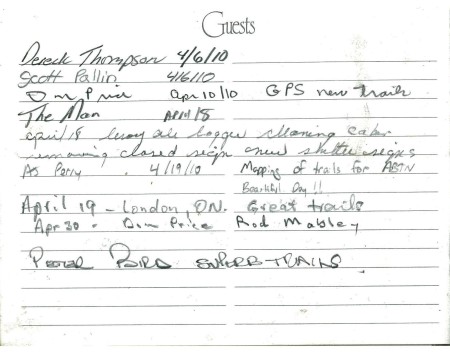 Guests
Dereck Thompson 4/6/10
Scott Pallin 4/6/10
Dom Price Apr 10/10 GPS new trails
The Man APRIL 18
april 18 cleaning cabin
removing closed sign new shelter signs
AJ Perry . 4/19/10 Mapping of trails for ABTN
Beautiful Day!!
April 19 - London, ON. Great trails
Apr 30 - Dom Price Rod Mabley
PETER BIRD SUPERB-TRAILS